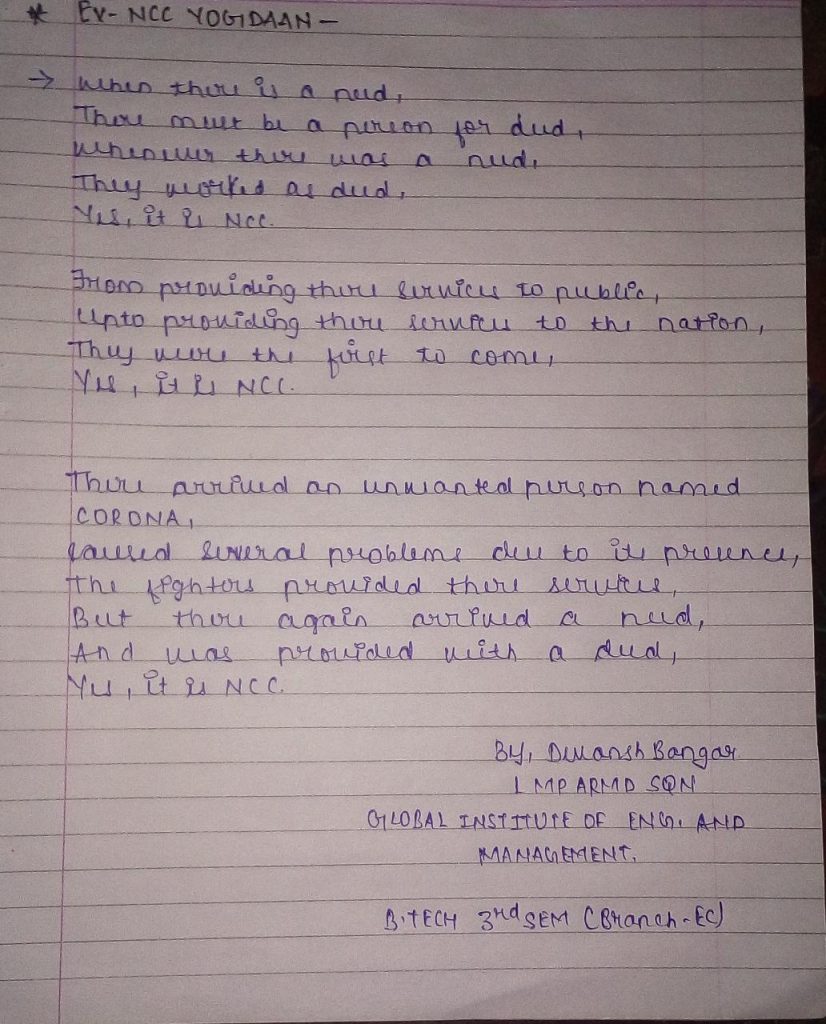 * EX- NCC YOGDAAN -
→ When there is a need,
There must be a person for deed,
Whenever there was a need,
They worked as deed,
Yes, it is NCC.
From providing there services to public,
Upto providing there services to the nation,
They were the first to come,
Yes, it is NCC.
There arrived an unwanted person named
CORONA,
Caused several problems due to its presence,
The fighters provided there services,
But there again arrived a need,
And was provided with a deed,
Yes, it is NCC.
By, Devansh Bangar
1 MP ARMD SQN
GLOBAL INSTITUTE OF ENG. AND
MANAGEMENT.
B.TECH 3rd SEM (Branch-EC)